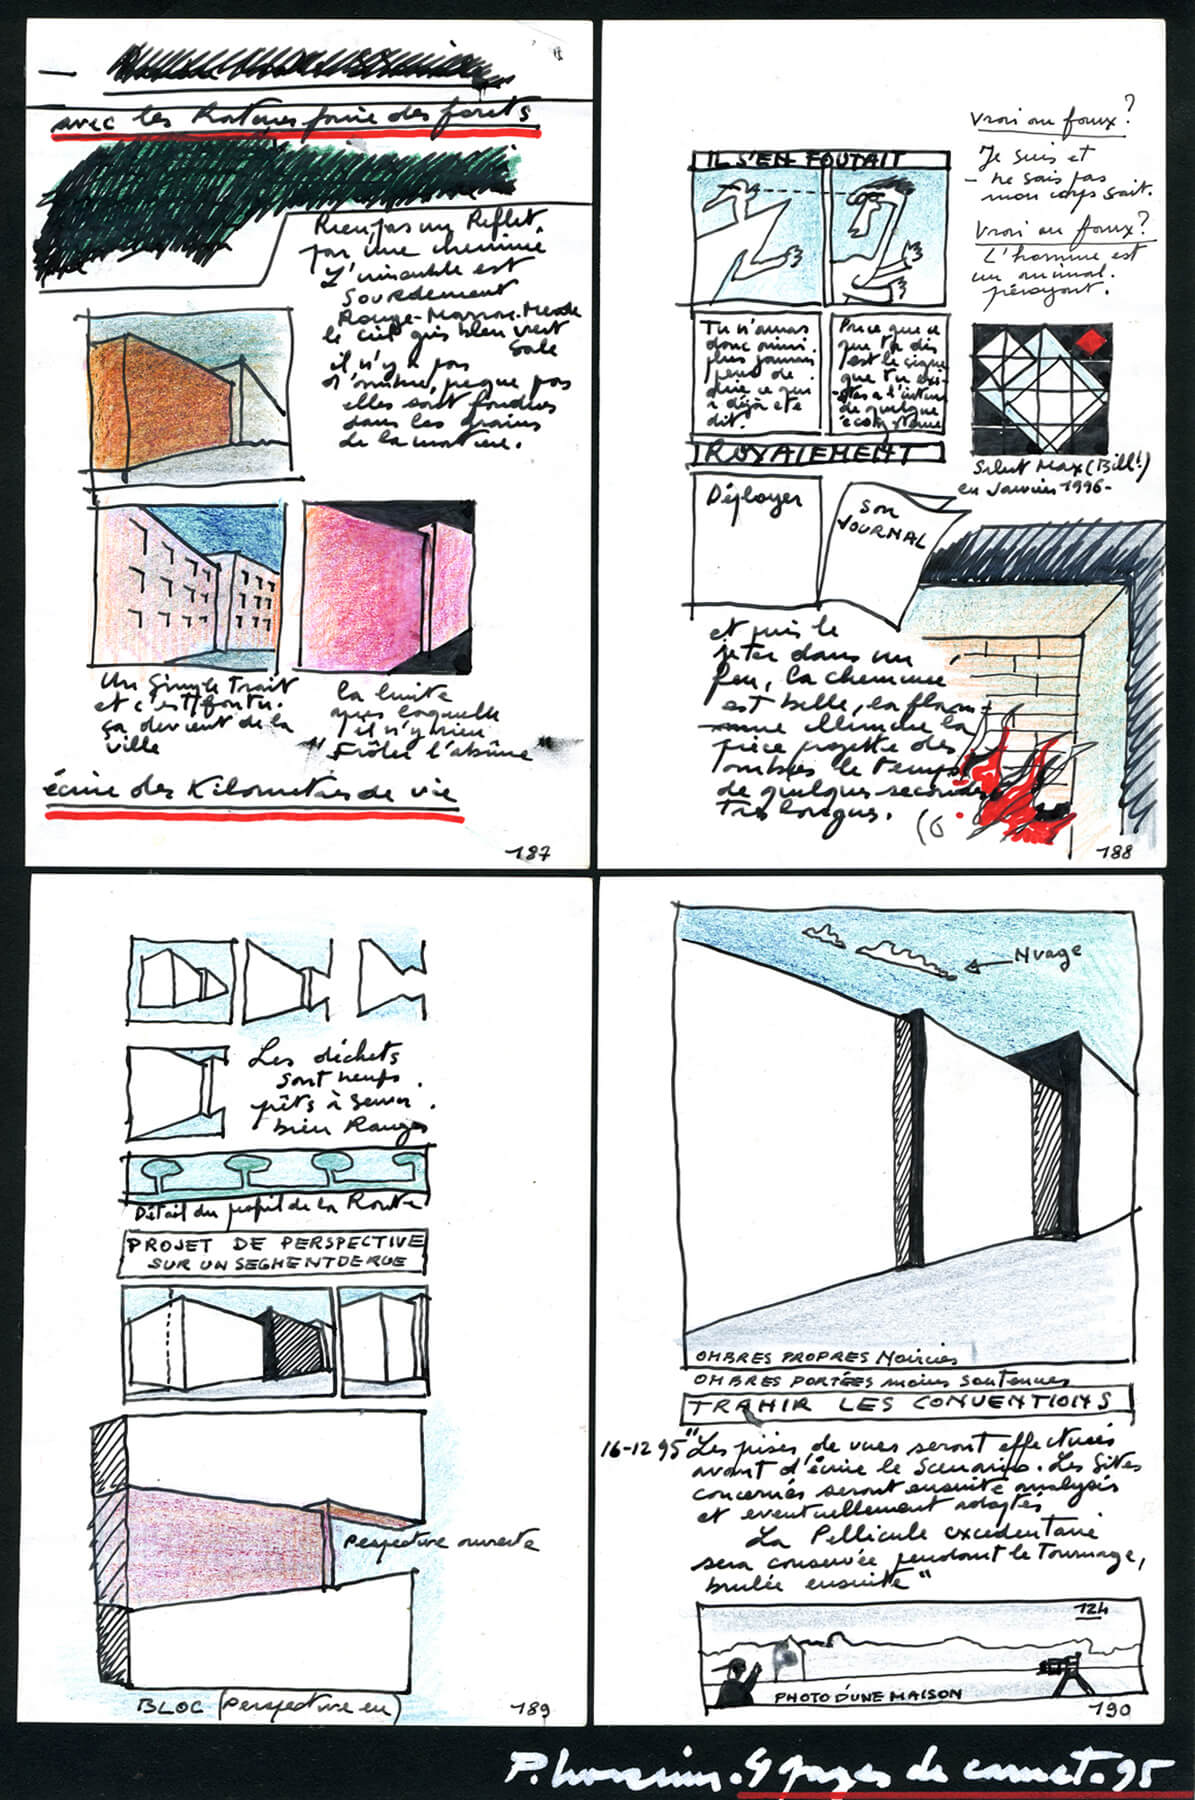 avec les Ratures faire des forêts
Rien, pas un Reflet,
par une
L'immeuble est
Sourdement
Rouge-Marron-Merde
le ciel gris bleu vert
sale
il n'y a pas
d'ombre, pasque pas
elles sont fondues
dans les grains
de la matière.
Un Simple Trait
et c'est foutu.
ça devient de la
ville
La limite
après laquelle
il n'y a rien
"Frôler l'abîme"
écrire des Kilomètres de vie
187
vrai ou faux?
Je suis et
- ne sais pas
mon corps sait.
vrai ou faux?
L'homme est
un animal.
IL S'EN FOUTAIT
Tu n'auras
donc ainsi
plus jamais
peur de
dire ce qui
a déjà été
dit.
Parce que ce
que tu dis
est le signe
que tu exi-
stes à l'intérieur
de quelque
Salut Max (Bill!)
en Janvier 1996-
ROYALEMENT
Déployer
SON
JOURNAL
et puis le
jeter dans un
feu, la cheminée
est belle, la flam-
me illumine la
pièce projette des
ombres le temps
de quelques secondes
Très longues.
188
Les déchets
sont neufs.
prêts à servir.
bien Rangés
Détail du profil de la Route
PROJET DE PERSPECTIVE
SUR UN SEGMENT DE RUE
Perspective ouverte
BLOC (Perspective en)
189
Nuage
OMBRES PROPRES Noircies
OMBRES PORTÉES moins soutenues
TRAHIR LES CONVENTIONS
16-12 95 "Les prises de vues seront effectuées
avant d'écrire le Scénario. Les Sites
concernés seront ensuite analysés
et eventuellement adaptés
La Pellicule excédentaire
sera conservée pendant le Tournage,
brulée ensuite"
12h
PHOTO D'UNE MAISON
190
4 pages de carnet. 95